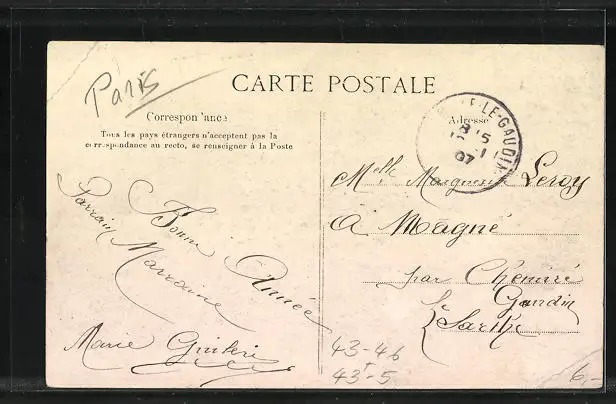 Paris
CARTE POSTALE
Correspondance
Tous les pays étrangers n'acceptent pas la
correspondance au recto, se renseigner à la Poste
Adresse
LE-GAUDIN
8 15
1
07
Melle Marguerite Leroy
à Magné
par Chemiré
Gaudin
Sarthe
Bonne Année
Parrain Marraine
Marie
43-46
43-5
6,-